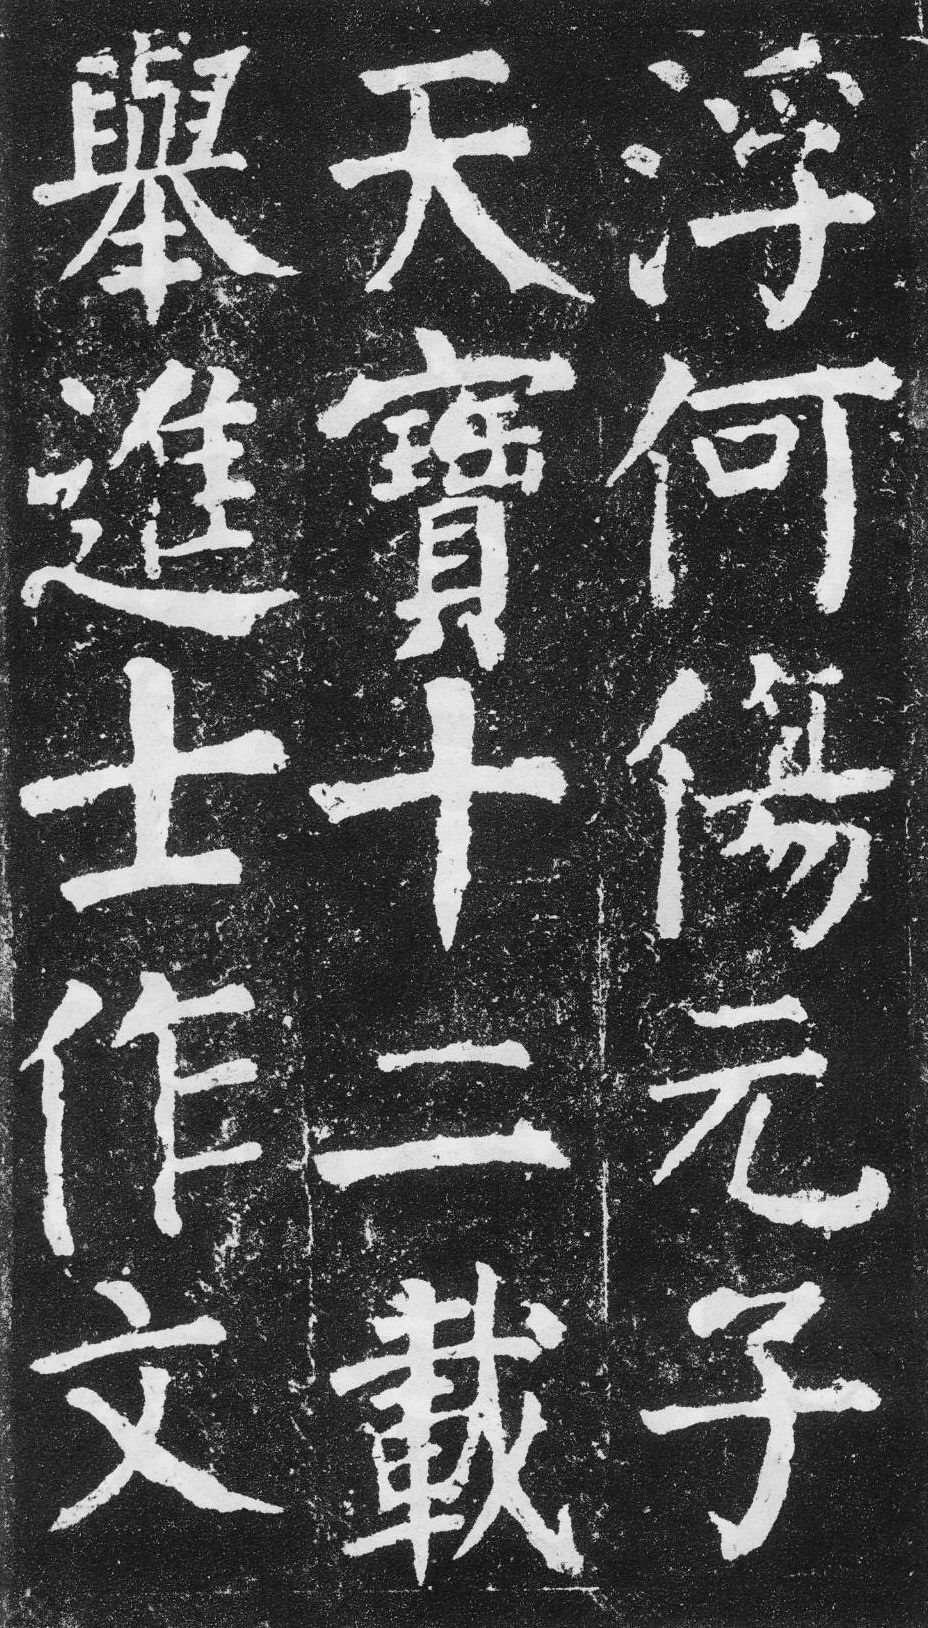 浮何傷元子
天寶十二載
舉進士作文